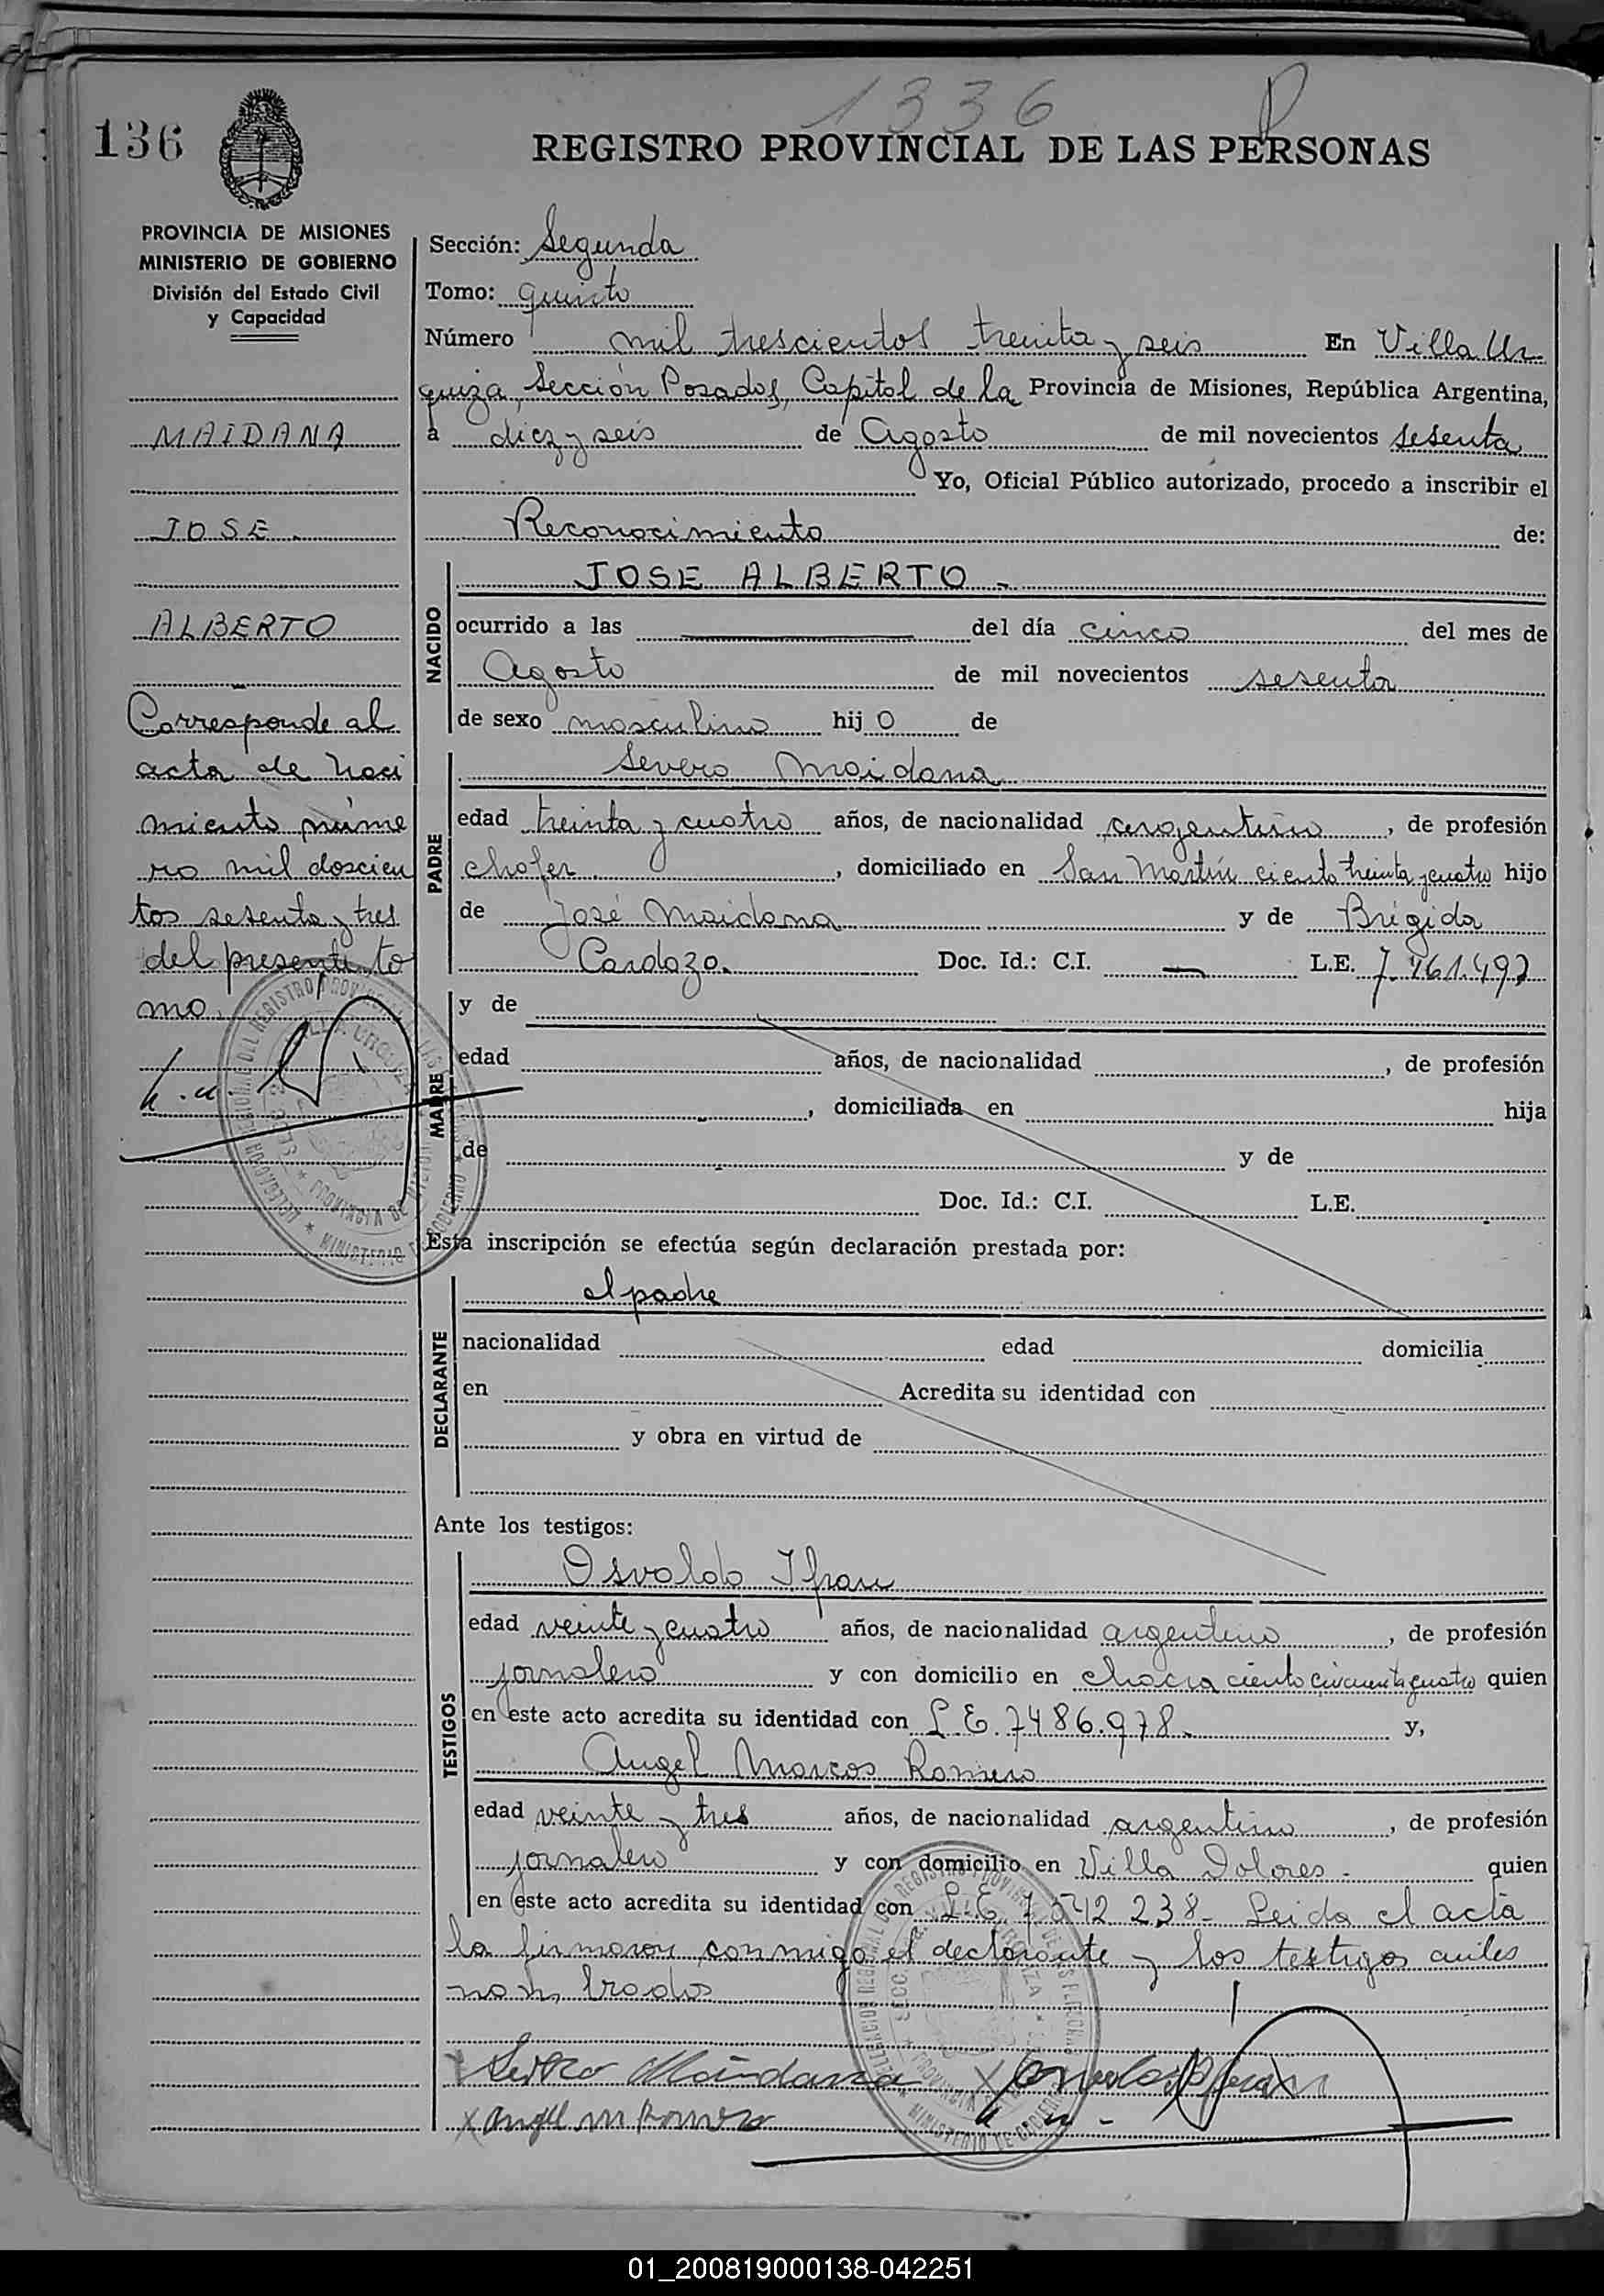 1336
136
REGISTRO PROVINCIAL DE LAS PERSONAS
PROVINCIA DE MISIONES
MINISTERIO DE GOBIERNO
División del Estado Civil
y Capacidad
MAIDANA
JOSE
ALBERTO
Corresponde al
acta de naci
miento núme
ro mil doscien
tos sesenta y tres
del presente to
mo.
Sección: Segunda
Tomo: quinto
Número mil trescientos treinta y seis En Villa Ur
quiza, Sección Posadas, Capital de la Provincia de Misiones, República Argentina,
a diez y seis de Agosto de mil novecientos sesenta
Yo, Oficial Público autorizado, procedo a inscribir el
Reconocimiento de:
NACIDO
JOSE ALBERTO -
ocurrido a las del día cinco del mes de
Agosto de mil novecientos sesenta
de sexo masculino hijo de
PADRE
Severo Maidana
edad treinta y cuatro años, de nacionalidad argentino, de profesión
chofer, domiciliado en San Martín ciento treinta y cuatro hijo
de José Maidana y de Brígida
Cardozo. Doc. Id.: C.I. — L.E.
MADRE
y de
edad años, de nacionalidad , de profesión
, domiciliada en hija
de y de
Doc. Id.: C.I. L.E.
Esta inscripción se efectúa según declaración prestada por:
DECLARANTE
el padre
nacionalidad edad domicilia
en Acredita su identidad con
y obra en virtud de
Ante los testigos:
TESTIGOS
Osvaldo Ifran
edad veinte y cuatro años, de nacionalidad argentino, de profesión
jornalero y con domicilio en chacra ciento cincuenta y cuatro quien
en este acto acredita su identidad con L.E. 7486.978. y,
Angel Marcos Romero
edad veinte y tres años, de nacionalidad argentino, de profesión
jornalero y con domicilio en Villa Dolores - quien
en este acto acredita su identidad con L.E. 7542 238 - Leida el acta
la firmaron conmigo el declarante y los testigos antes
nombrados
x Severo Maidana x Osvaldo Ifran
x Angel M Romero
01_200819000138-042251